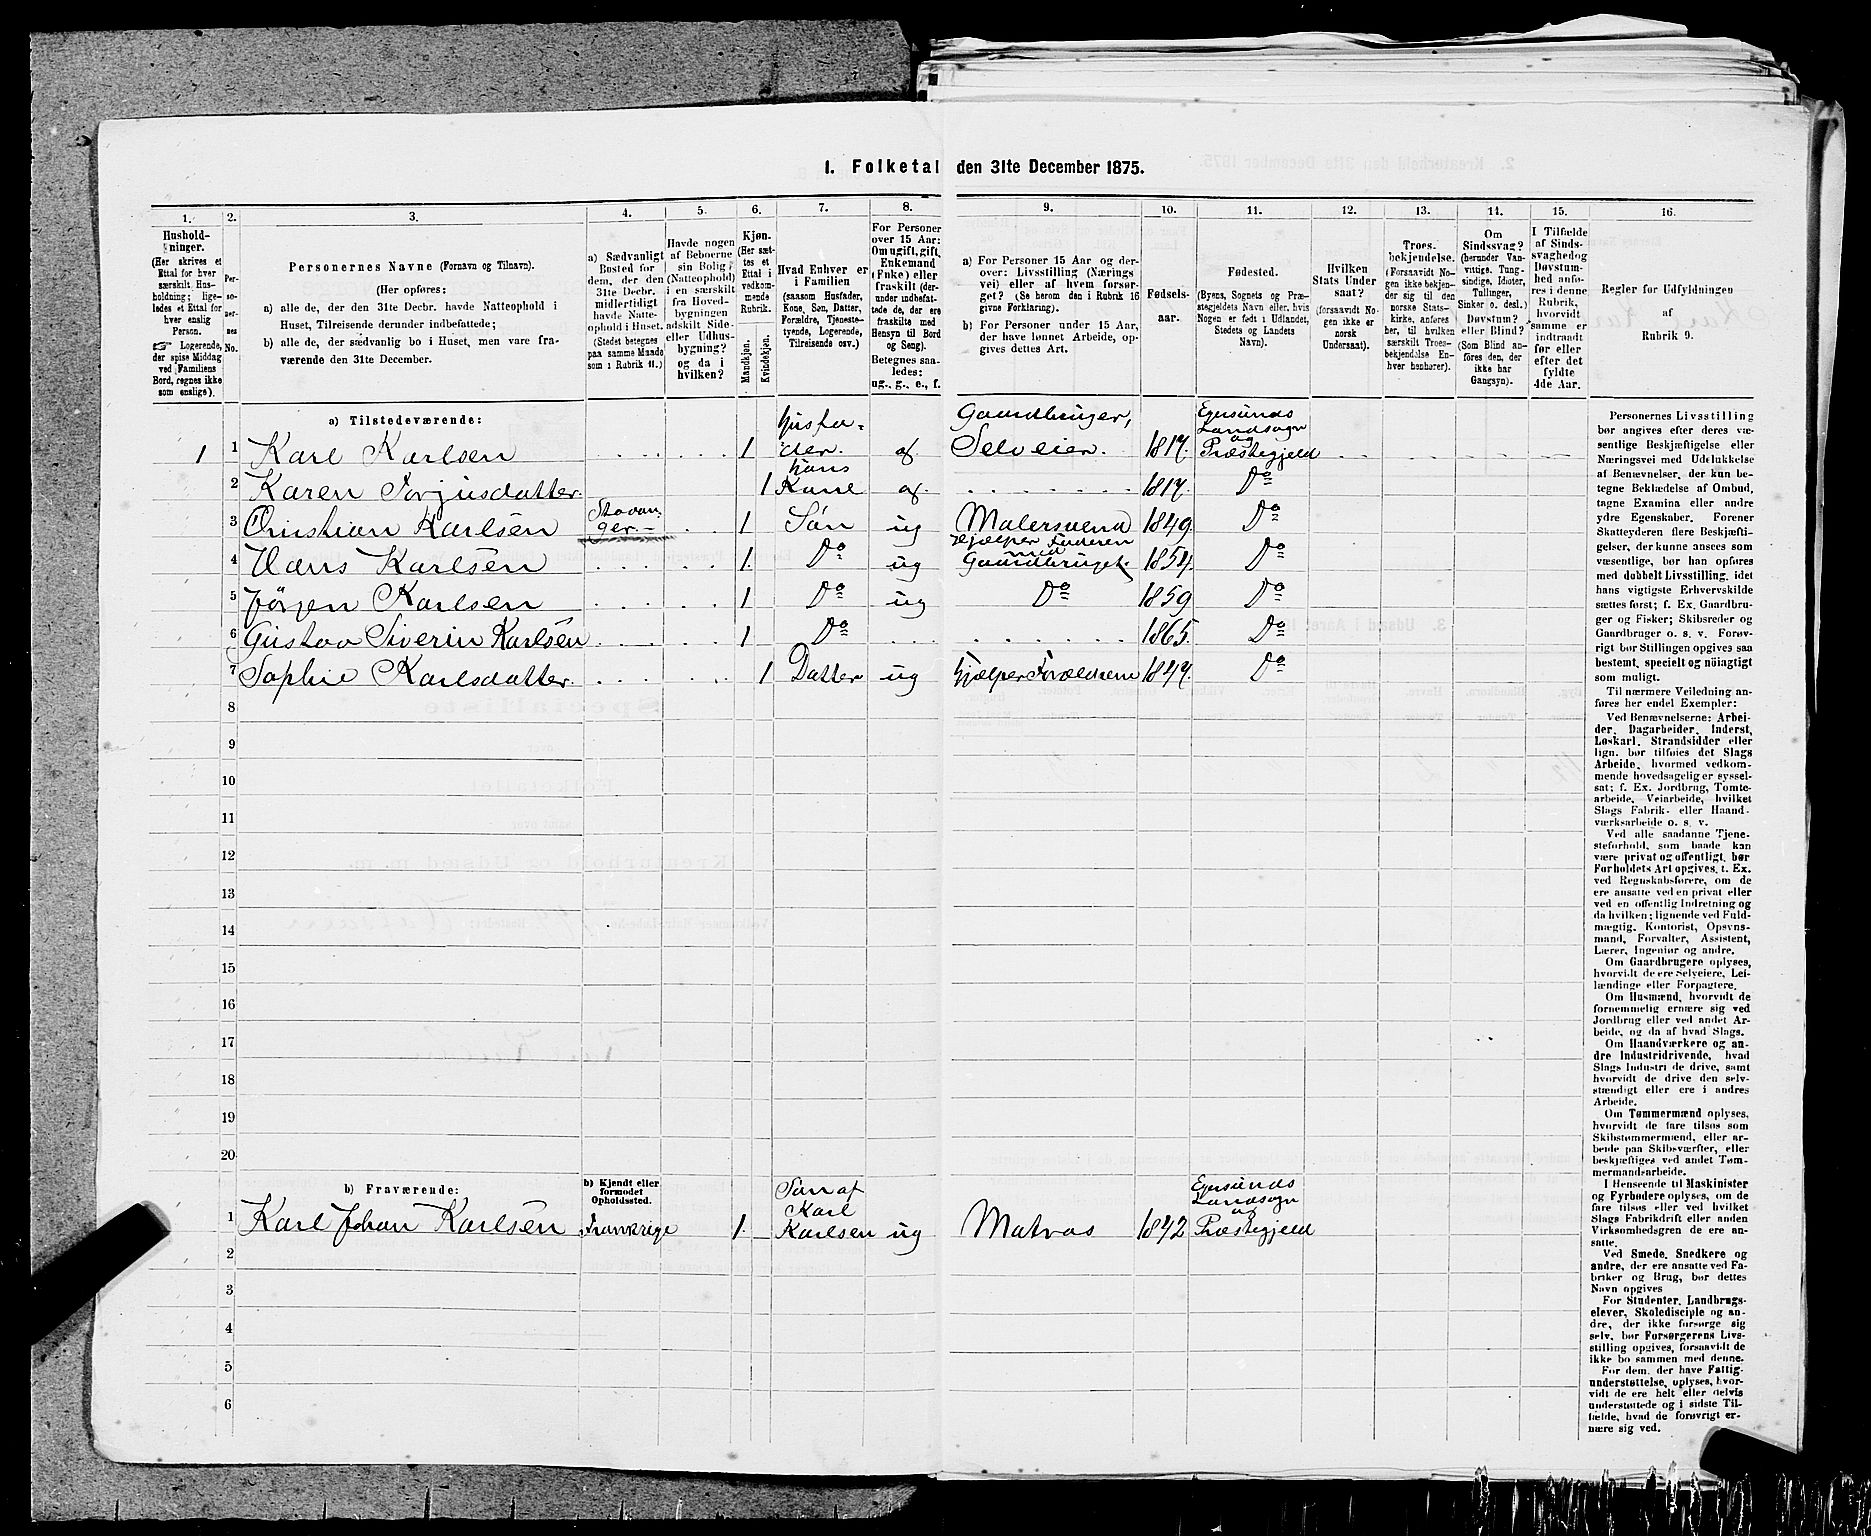 1. Folketal den 31te December 1875.
1. 2. 3. 4. 5. 6. 7. 8. 9. 10. 11. 12. 13. 14. 15. 16.
Hushold-
ninger.
(Her skrives et
Ettal for hver
særskilt Hus-
holdning; lige-
ledes et Ettal for
hver enslig
Person.
☞ Logerende,
der spise Middag
ved Familiens
Bord, regnes ikke
som enslige).
Per-
so-
ner-
nes
No.
Personernes Navne (Fornavn og Tilnavn).
(Her opføres:
a) alle de, der den 31te Decbr. havde Natteophold i
Huset, Tilreisende derunder indbefattede;
b) alle de, der sædvanlig bo i Huset, men vare fra-
værende den 31te December.
a) Sædvanligt
Bosted for
dem, der den
31te Decbr.
midlertidigt
havde Natte-
ophold i Huset.
(Stedet betegnes
paa samme Maade
som i Rubrik 11.)
Havde nogen
af Beboerne
sin Bolig
(Natteophold)
i en særskilt
fra Hoved-
bygningen
adskilt Side-
eller Udhus-
bygning?
og da i
hvilken?
Kjøn.
(Her sæt-
tes et
Ettal i
vedkom-
mende
Rubrik.
Mandkjøn.
Kvindekjøn.
Hvad Enhver er
i Familien
(saasom Husfader,
Kone, Søn, Datter,
Forældre, Tjeneste-
tyende, Logerende,
Tilreisende osv.)
For Personer
over 15 Aar:
Om ugift, gift,
Enkemand
(Enke) eller
fraskilt (der-
under indbefat-
tede de, der ere
fraskilte med
Hensyn til Bord
og Seng).
Betegnes saa-
ledes:
ug., g., e., f.
a) For Personer 15 Aar og der-
over: Livsstilling (Nærings-
vei) eller af hvem forsør-
get? (Se herom den i Rubrik 16
givne Forklaring).
b) For Personer under 15 Aar,
der have lønnet Arbeide, op-
gives dettes Art.
Fødsels-
aar.
Fødested.
(Byens, Sognets og Præ-
stegjeldets Navn eller, hvis
Nogen er født i Udlandet,
Stedets og Landets
Navn).
Hvilken
Stats Under
saat?
(forsaavidt No-
gen ikke er
norsk
Undersaat).
Troes-
bekjendelse.
(Forsaavidt No-
gen ikke bekjen-
der sig til den
norske Stats-
kirke, anføres
her, til hvilken
særskilt Troes-
bekjendelse En-
hver henhører).
Om
Sindssvag?
(herunder Van-
vittige, Tung-
sindige, Idioter,
Tullinger,
Sinker o. desl.)
Døvstum?
eller Blind?
(Som Blind an-
føres den, der
ikke har
Gangsyn).
I Tilfælde
af Sinds-
svaghed og
Døvstum-
hed anfø-
res i denne
Rubrik,
hvorvidt
samme er
indtraadt
før eller
efter det
fyldte
4de Aar.
Regler for Udfyldningen
af
Rubrik 9.
a) Tilstedeværende:
1 1 Karl Karlsen 1 Husfa-
der. g Gaardbruger,
Selveier. 1817. Egersunds
Landsogn
og
Præstegjeld
2 Karen Torjusdatter. 1 hans
Kone g. 1817. Do
3 Christian Karlsen Stavan-
ger 1 Søn ug Malersvend 1849. Do
4 Hans Karlsen 1. Do ug Hjælper Faderen
med
Gaardbruget. 1854. Do
5 Jörgen Karlsen 1 Do ug Do 1859 Do
6 Gustav Siverin Karlsen 1 Do 1865. Do
7 Sophie Karlsdatter. 1 Datter ug hjælper Forældrene 1847. Do
8
9
10
11
12
13
14
15
16
17
18
19
20
b) Fraværende:
b) Kjendt eller
formodet
Opholdssted.
1 Karl Johan Karlsen Frankrige 1. Søn af
Karl
Karlsen ug Matros 1842 Egersunds
Landsogn
og
Præstegjeld
2
3
4
5
6
Personernes Livsstilling
bør angives efter deres væ-
sentlige Beskjæftigelse eller
Næringsvei med Udelukkelse
af Benævnelser, der kun be-
tegne Beklædelse af Ombud,
tagne Examina eller andre
ydre Egenskaber. Forener
Skatteyderen flere Beskjæfti-
gelser, der kunne ansees som
væsentlige, bør han opføres
med dobbelt Livsstilling, idet
hans vigtigste Erhvervskilde
sættes først; f. Ex. Gaardbru-
ger og Fisker; Skibsreder og
Gaardbruger o. s. v. Forøv-
rigt bør Stillingen opgives saa
bestemt, specielt og nöiagtigt
som muligt.
Til nærmere Veiledning an-
føres her endel Exempler:
Ved Benævnelserne: Arbei-
der, Dagarbeider, Inderst,
Løskarl, Strandsidder eller
lign. bør tilføies det Slags
Arbeide, hvormed vedkom-
mende hovedsagelig er syssel-
sat; f. Ex. Jordbrug, Tomte-
arbeide, Veiarbeide, hvilket
Slags Fabrik- eller Haand-
værksarbeide o. s. v.
Ved alle saadanne Tjene-
steforhold, som baade kan
være privat og offentligt, bør
Forholdets Art opgives, t. Ex.
ved Regnskabsførere, om de
ere ansatte ved en privat eller
ved en offentlig Indretning og
da hvilken; lignende ved Fuld-
mægtig, Kontorist, Opsyns-
mand, Forvalter, Assistent,
Lærer, Ingeniør og andre.
Om Gaardbrugere oplyses,
hvorvidt de ere Selveiere, Lei-
lændinge eller Forpagtere.
Om Husmænd, hvorvidt de
fornemmelig ernære sig ved
Jordbrug eller ved andet Ar-
beide, og da af hvad Slags.
Om Haandværkere og an-
dre Industridrivende, hvad
Slags Industri de drive, samt
hvorvidt de drive den selv-
stændigt eller ere i andres
Arbeide.
Om Tømmermænd oplyses,
hvorvidt de fare tilsøs som
Skibstømmermænd, eller ar-
beide paa Skibsværfter, eller
beskjæftiges ved andet Tøm-
mermandsarbeide.
I Henseende til Maskinister
og Fyrbødere oplyses, om de
fare tilsøs eller ved hvilket
Slags Fabrikdrift eller anden
Virksomhedsgren de ere an-
satte.
Ved Smede, Snedkere og
andre, der ere ansatte ved Fa-
briker og Brug, bør dettes
Navn opgives
For Studenter, Landbrugs-
elever, Skoledisciple og an-
dre, der ikke forsørge sig
selv, bør Forsørgerens Livs-
stilling opgives, forsaavidt de
ikke bo sammen med denne.
For dem, der have Fattig-
understøttelse, oplyses, hvor-
vidt de ere helt eller delvis
understøttede og i sidste Til-
fælde, hvad de forøvrigt er-
nære sig ved.